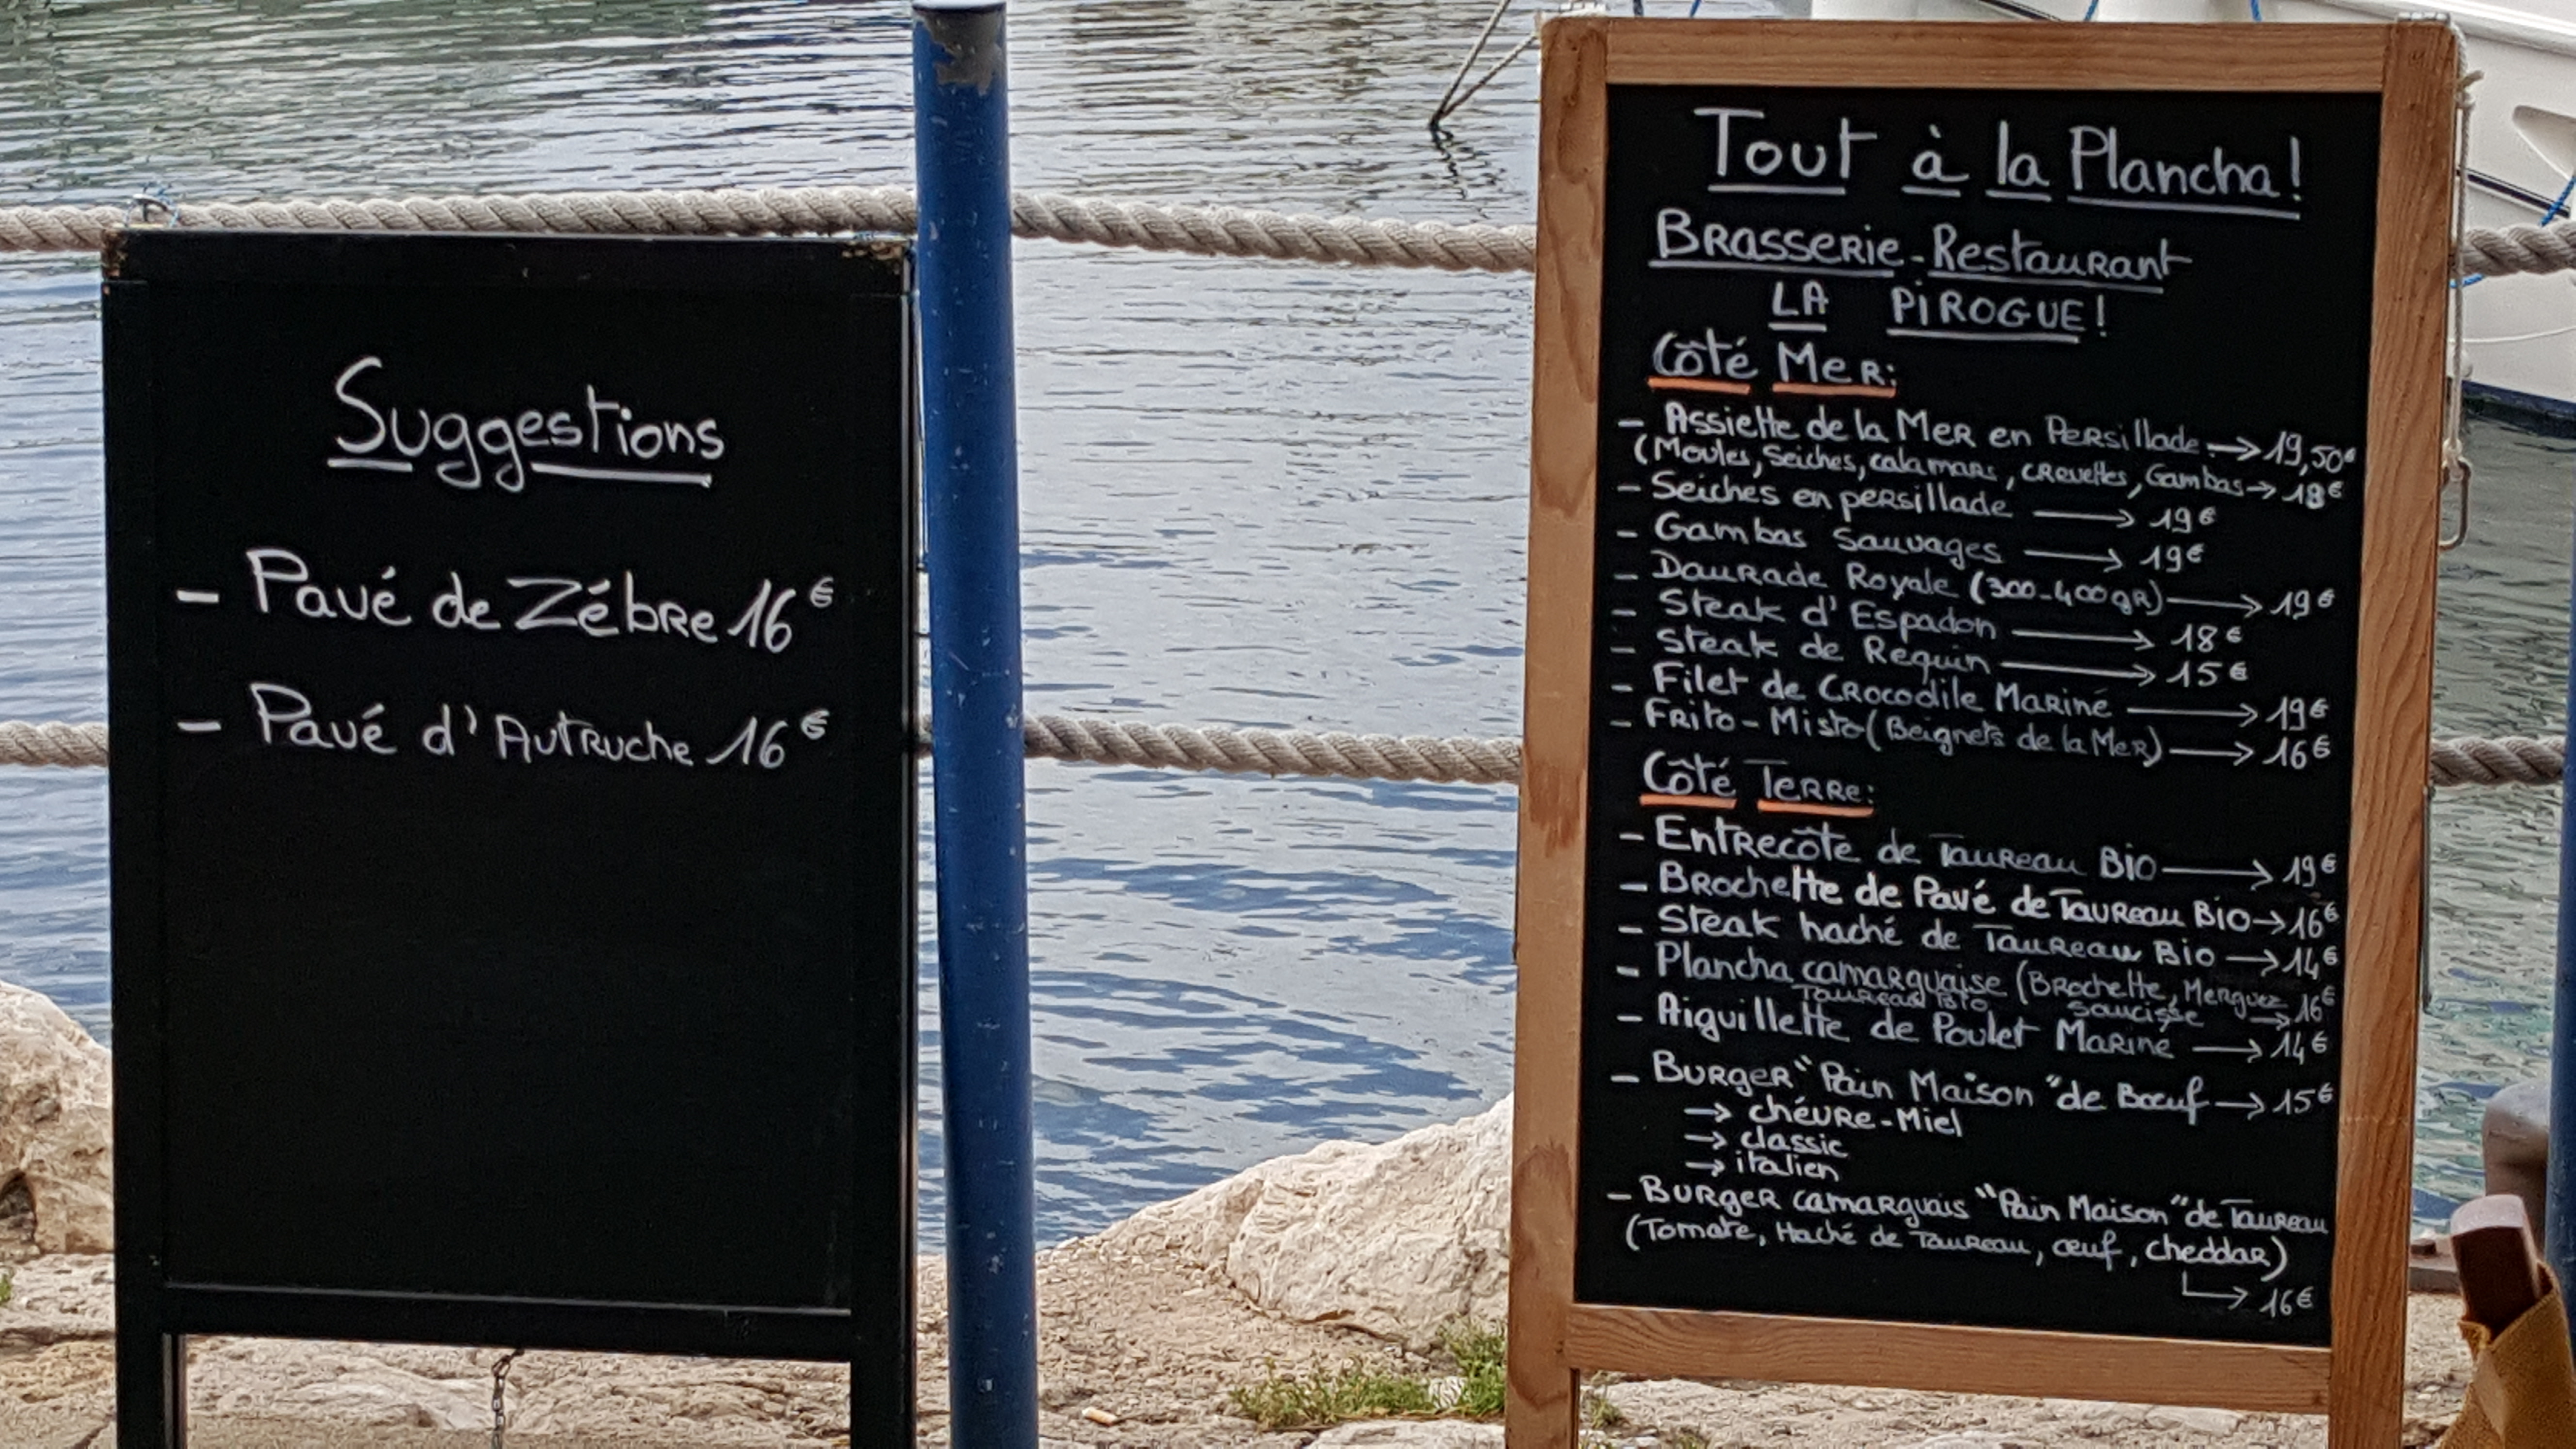 Suggestions
- Pavé de Zébre 16€
- Pavé d'Autruche 16€
Tout à la Plancha!
Brasserie-Restaurant
LA PiROGUE!
Côté Mer:
- Assiette de la Mer en Persillade → 19,50€
(Moules, Seiches, calamars, crevettes, Gambas → 18€
- Seiches en persillade → 19€
- Gambas Sauvages → 19€
- Daurade Royale (300-400gR) → 19€
- Steak d'Espadon → 18€
- Steak de Requin → 15€
- Filet de Crocodile Mariné → 19€
- Frito-Misto (Beignets de la Mer) → 16€
Côté Terre:
- Entrecôte de Taureau Bio → 19€
- Brochette de Pavé de Taureau Bio → 16€
- Steak haché de Taureau Bio → 14€
- Plancha camarguaise (Brochette, Merguez 16€
Taureau Bio Saucisse → 16€
- Aiguillette de Poulet Mariné → 14€
- Burger "Pain Maison" de Bœuf → 15€
→ chévre-Miel
→ classic
→ italien
- Burger camarguais "Pain Maison" de Taureau
(Tomate, Haché de Taureau, œuf, cheddar)
→ 16€